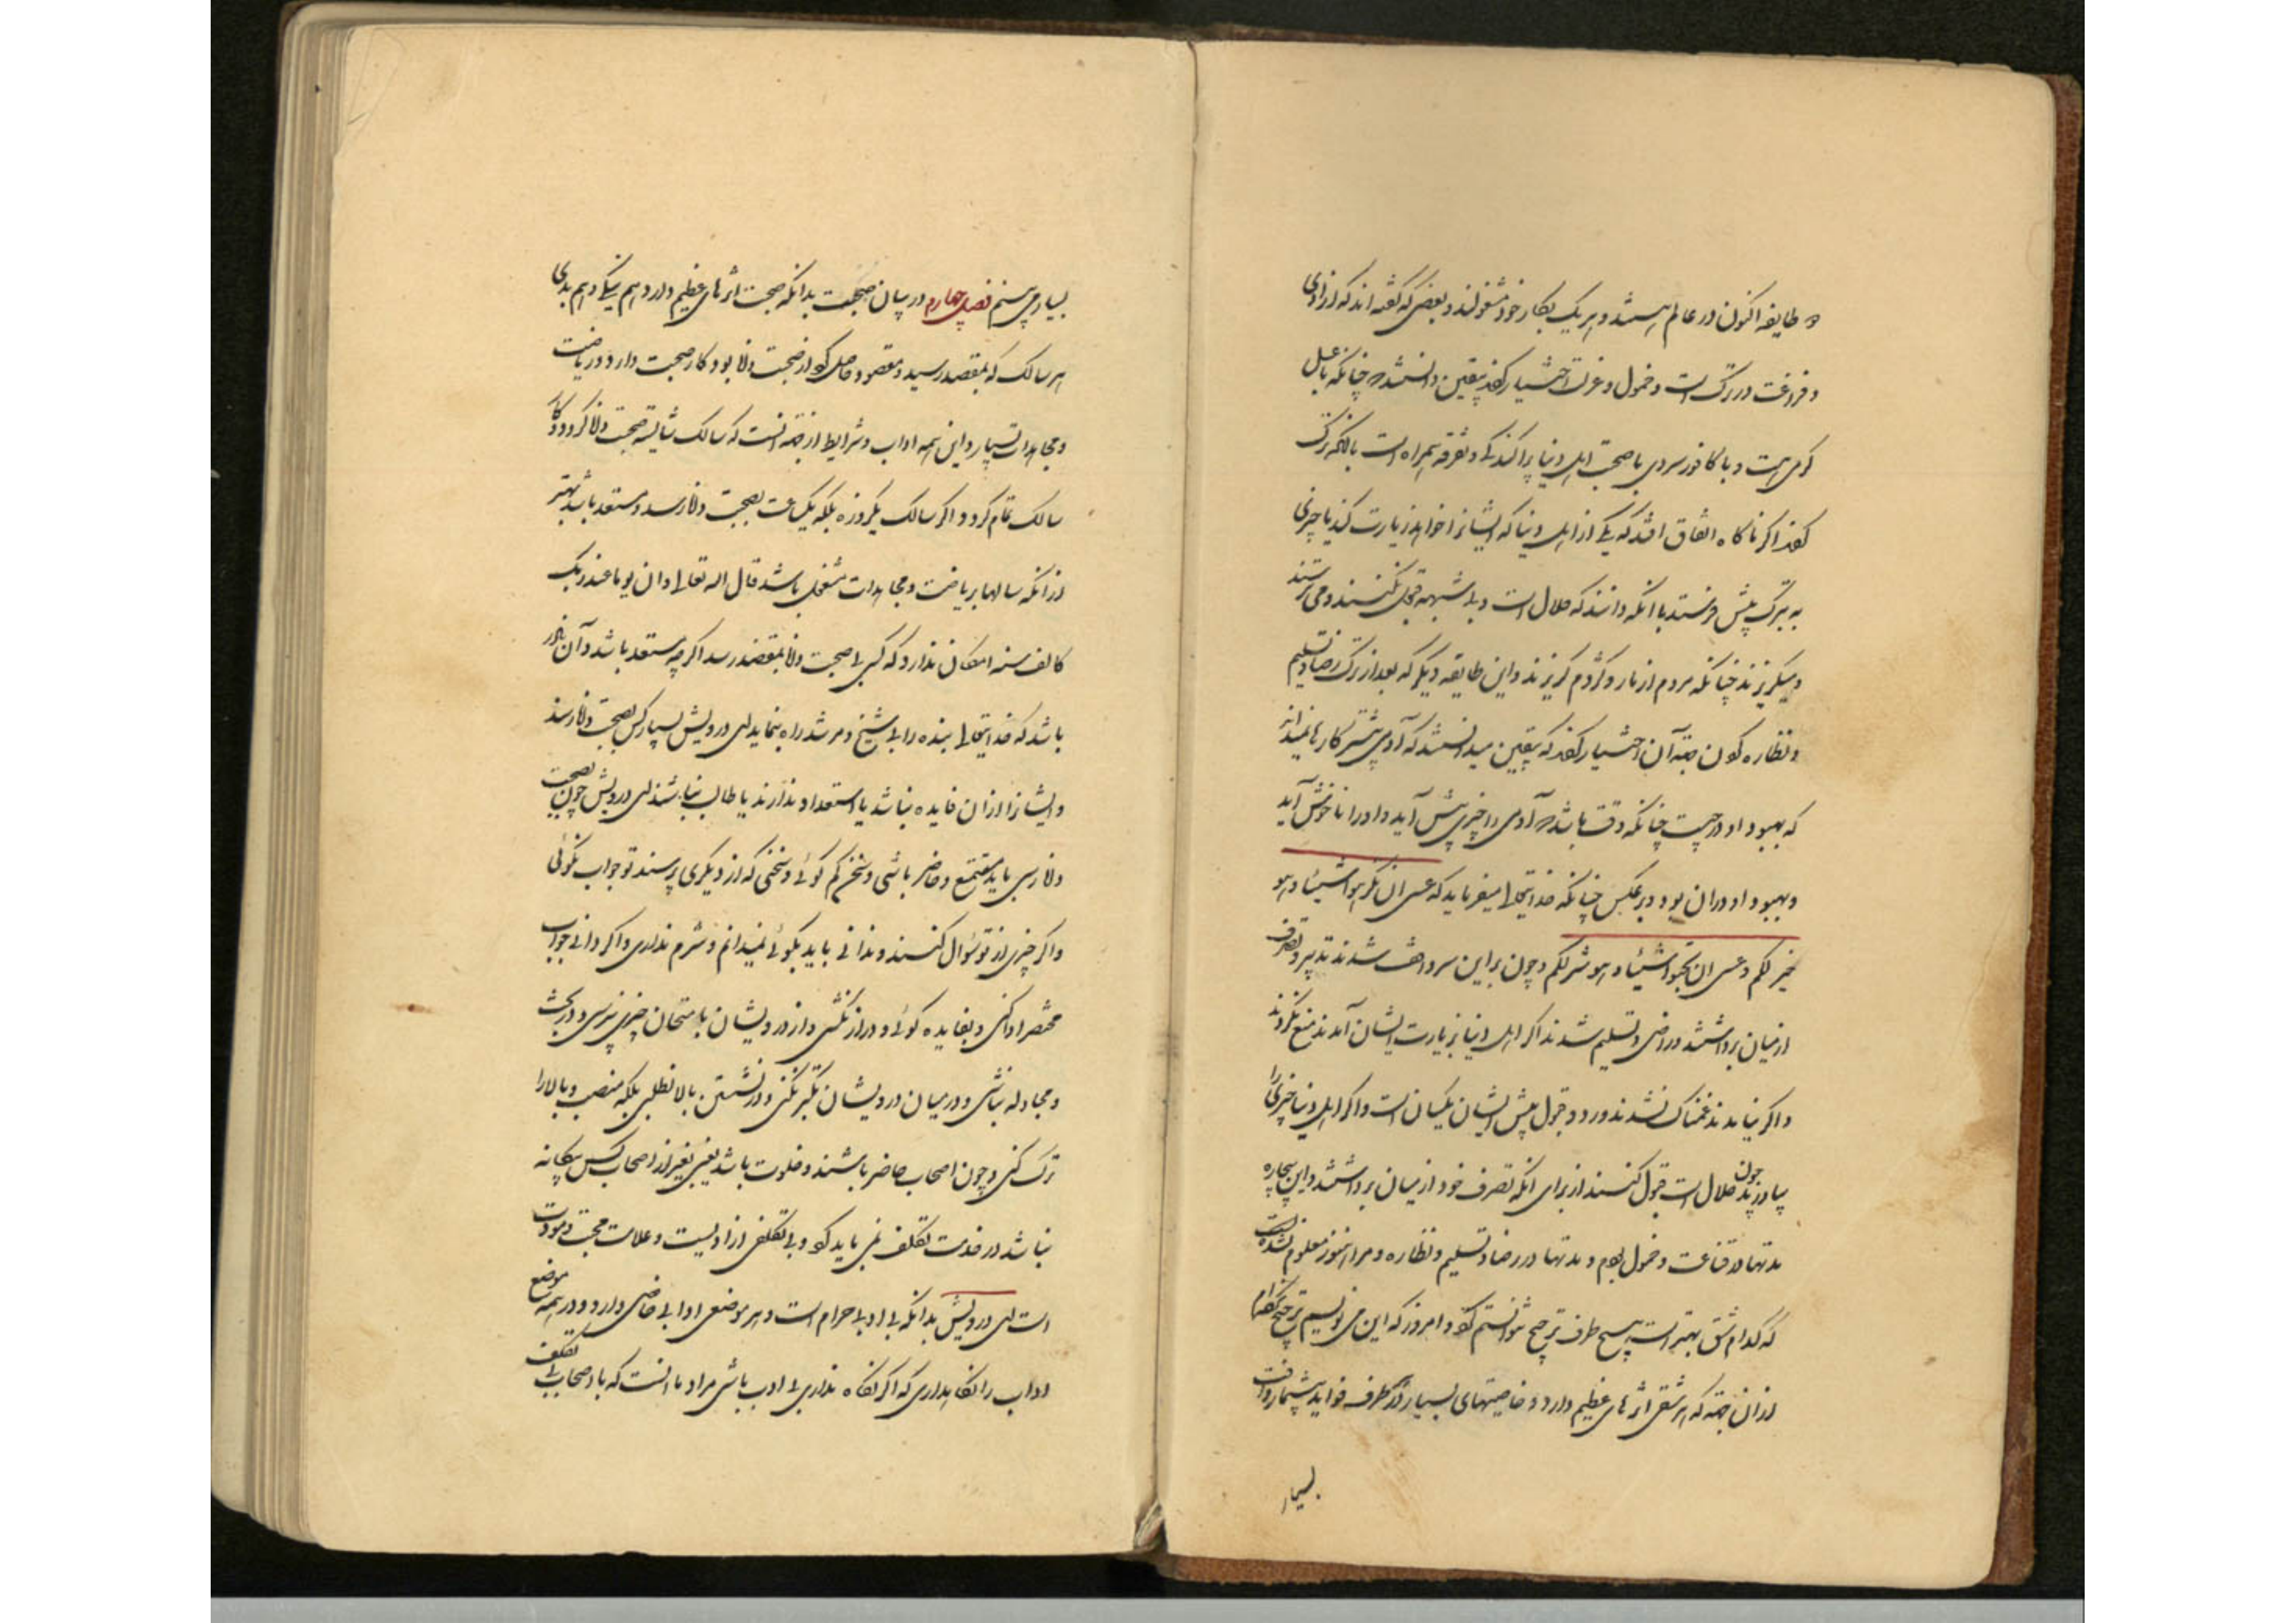 دو طایفه اکنون در عالم هستند و هر یک بکار خود مشغولند و بعضی که گفته‌اند که آزادی
و فراغت در ترک است و خمول و عزلت اختیار کردند بیقین دانستند که چنانکه با عسل
کرمی است و با کافور سردی با صحبت اهل دنیا پراکندگی و تفرقه همراه است بالکلیه ترک
کردند اکر ناکاه اتفاق افتد که یکی از اهل دنیا که ایشانرا خواهد زیارت کند یا چیزی
به تبرک پیش فرستد با آنکه دانند که حلال است و بی شبهه قبول نکنند و می‌ترسند
و میکریزند چنانکه مردم از مار و کژدم کریزند و این طایفه دیگر که بعد از ترک رضا و تسلیم
و نظاره کردن جهت آن اختیار کردند که بیقین میدانستند که آدمی بیشتر کارها نمیداند
که بهبود او در چیست چنانکه وقت باشد که آدمی را چیزی پیش آید و او را ناخوش آید
و بهبود او در آن بود و برعکس چنانکه خدایتعالی میفرماید که عسی ان تکرهوا شیئا و هو
خیر لکم و عسی ان تحبوا شیئا و هو شر لکم و چون براین سر واقف شدند تدبیر و تصرف
از میان برداشتند و راضی و تسلیم شدند اکر اهل دنیا بزیارت ایشان آمدند منع نکردند
و اکر نیامدند غمناک نشدند و رد و قبول پیش ایشان یکسان است و اکر اهل دنیا چیزی را
بیاورند چون حلال است قبول کنند از برای آنکه تصرف خود از میان برداشتند و این بیچاره
مدتها در قناعت و خمول بودم و مدتها در رضا و تسلیم و نظاره و مرا هنوز معلوم نشده است
که کدام شق بهتر است هیچ طرف ترجیح نتوانستم کرد و امروز که این می نویسم ترجیح نکرده‌ام
از آن جهت که هر شقی اثرهای عظیم دارد و خاصیتهای بسیار و در هر طرف فواید بیشمار و آفت
بسیار
بسیار می بینم فصل چهارم در بیان صحبت بدانکه صحبت اثرهای عظیم دارد هم بنیکی و هم ببدی
هر سالک که بمقصد رسید و مقصود حاصل کرد از صحبت دانا بود کار صحبت دارد و ریاضت
و مجاهدات بسیار و این همه آداب و شرایط از جهت آنست که سالک شایسته صحبت دانا کردد و کار
سالک تمام کردد و اکر سالک یکروزه بلکه یکساعت بصحبت دانا رسد و مستعد باشد بهتر
از آنکه سالها بریاضت و مجاهدات مشغول باشد قال الله تعالی و ان یوما عند ربک
کالف سنه امکان ندارد که کسی بی صحبت دانا بمقصد رسد اکر چه مستعد باشد و آن نادر
باشد که خدایتعالی بنده را بی شیخ و مرشد راه بنماید ای درویش بسیار کس بصحبت دانا رسند
و ایشانرا از آن فایده نباشد یا استعداد ندارند یا طالب نباشند ای درویش چون بصحبت
دانا رسی باید مستمع و حاضر باشی و سخن کم کوئی و سخنی که از دیکری پرسند تو جواب نکوئی
و اکر چیزی از تو سؤال کنند و ندانی باید بکوئی نمیدانم و شرم نداری و اکر دانی جواب
مختصر ادا کنی و بفایده کوئی و دراز نکشی و از درویشان بامتحان چیزی نپرسی و در بحث
و مجادله نباشی و در میان درویشان تکبر نکنی و در نشستن بالا نطلبی بلکه منصب و بالا را
ترک کنی و چون اصحاب حاضر باشند و خلوت باشد یعنی بغیر از اصحاب کس بیکانه
نباشد در خدمت تکلف نمی باید کرد و بی تکلفی آزادیست و علامت محبت و مودت
است ای درویش بدانکه بی ادبی حرام است و هر موضعی آدابی خاص دارد و در همه موضع
آداب را نکاهداری که اکر نکاه نداری بی ادب باشی مراد ما آنست که با اصحاب بی تکلف